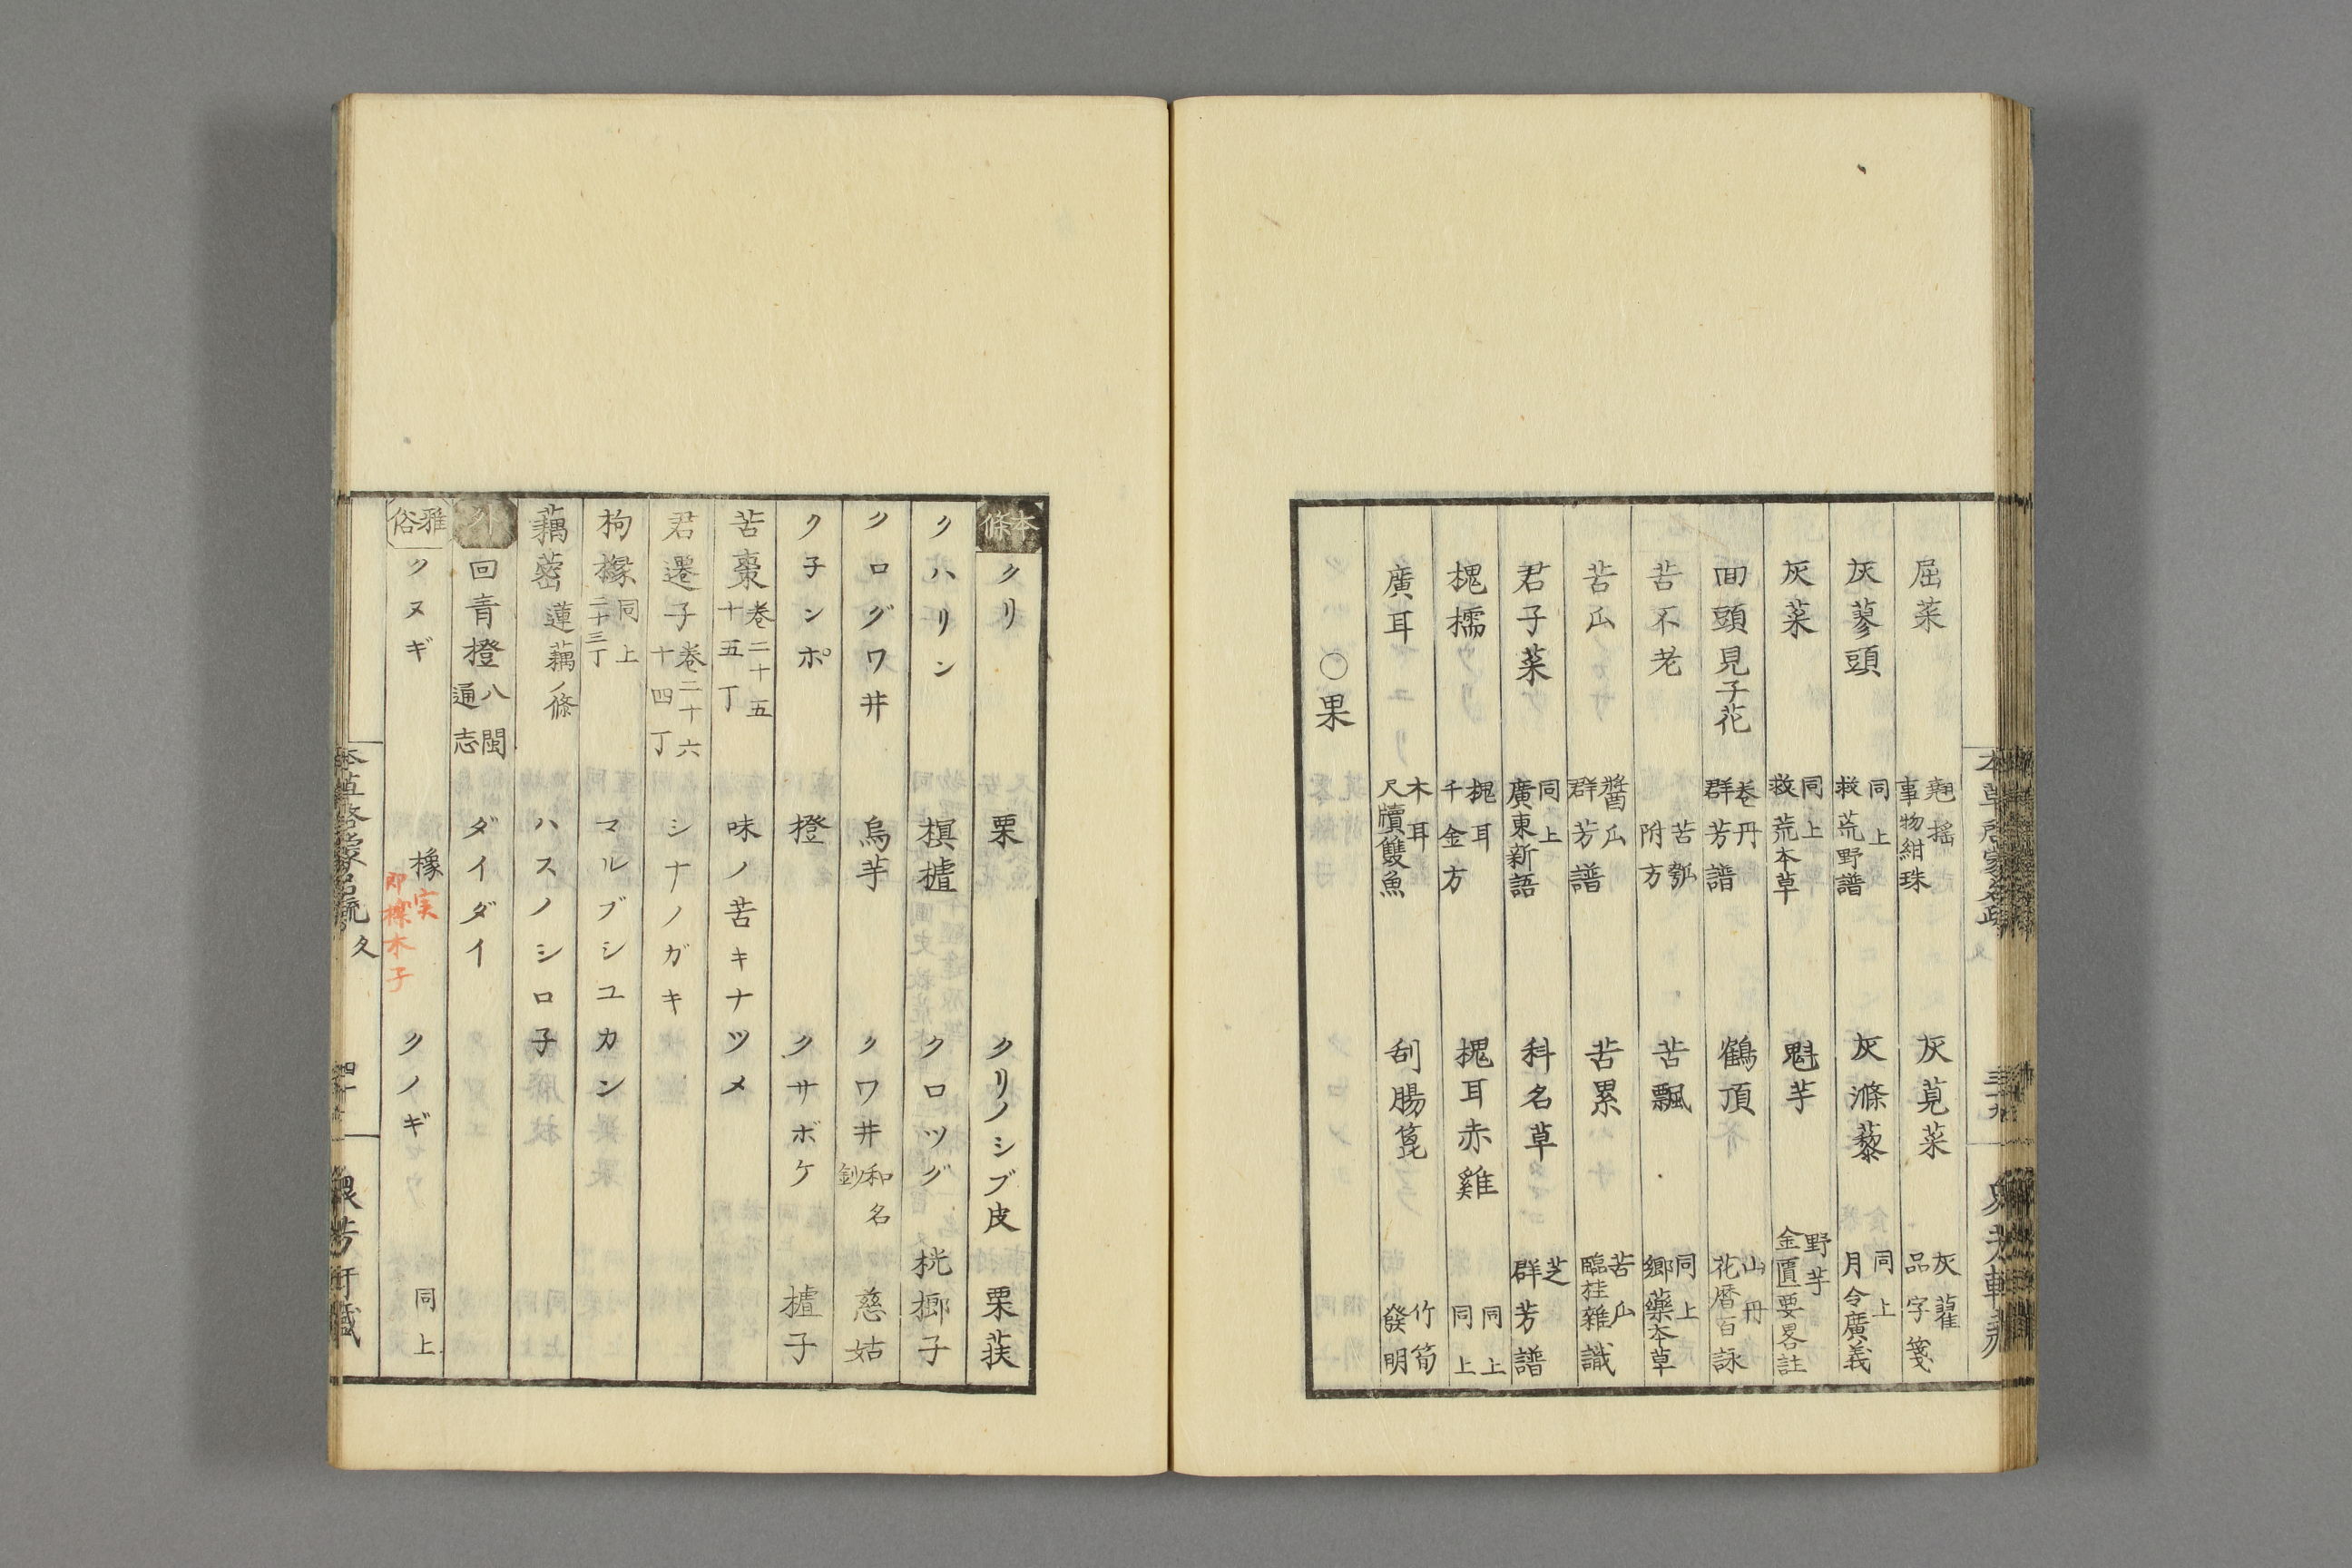 屈菜 翹搖 事物紺珠 灰莧菜 灰藋 品字箋
灰蓼頭 同上 救荒野譜 灰滌藜 同上 月令廣義
灰菜 同上 救荒本草 魁芋 野芋 金匱要畧註
回頭見子花 卷丹 群芳譜 鶴頂 山丹 花暦百詠
苦不老 苦瓠 附方 苦瓢 同上 鄉藥本草
苦瓜 醬瓜 群芳譜 苦累 苦瓜 臨桂雜識
君子菜 同上 廣東新語 科名草 芝 群芳譜
槐檽 槐耳 千金方 槐耳赤雞 同上 同上
廣耳 木耳 尺牘雙魚 刮腸篦 竹筍 發明
○果
本草啓蒙名疏
本條 クリ 栗 クリノシブ皮 栗荴
クハリン 榠樝 クロツグ 桄榔子
クログワ井 烏芋 クワ井 和名鈔 慈姑
クネンポ 橙 クサボケ 樝子
苦棗 卷二十五 十五丁 味ノ苦キナツメ
君遷子 卷二十六 十四丁 シナノガキ
枸櫞 同上 二十三丁 マルブシユカン
藕蔤 蓮藕ノ條 ハスノシロ子
外 回青橙 八閩通志 ダイダイ
雅俗 クヌギ 橡実 即櫟木子 クノギ 同上
本草啓蒙名疏 久